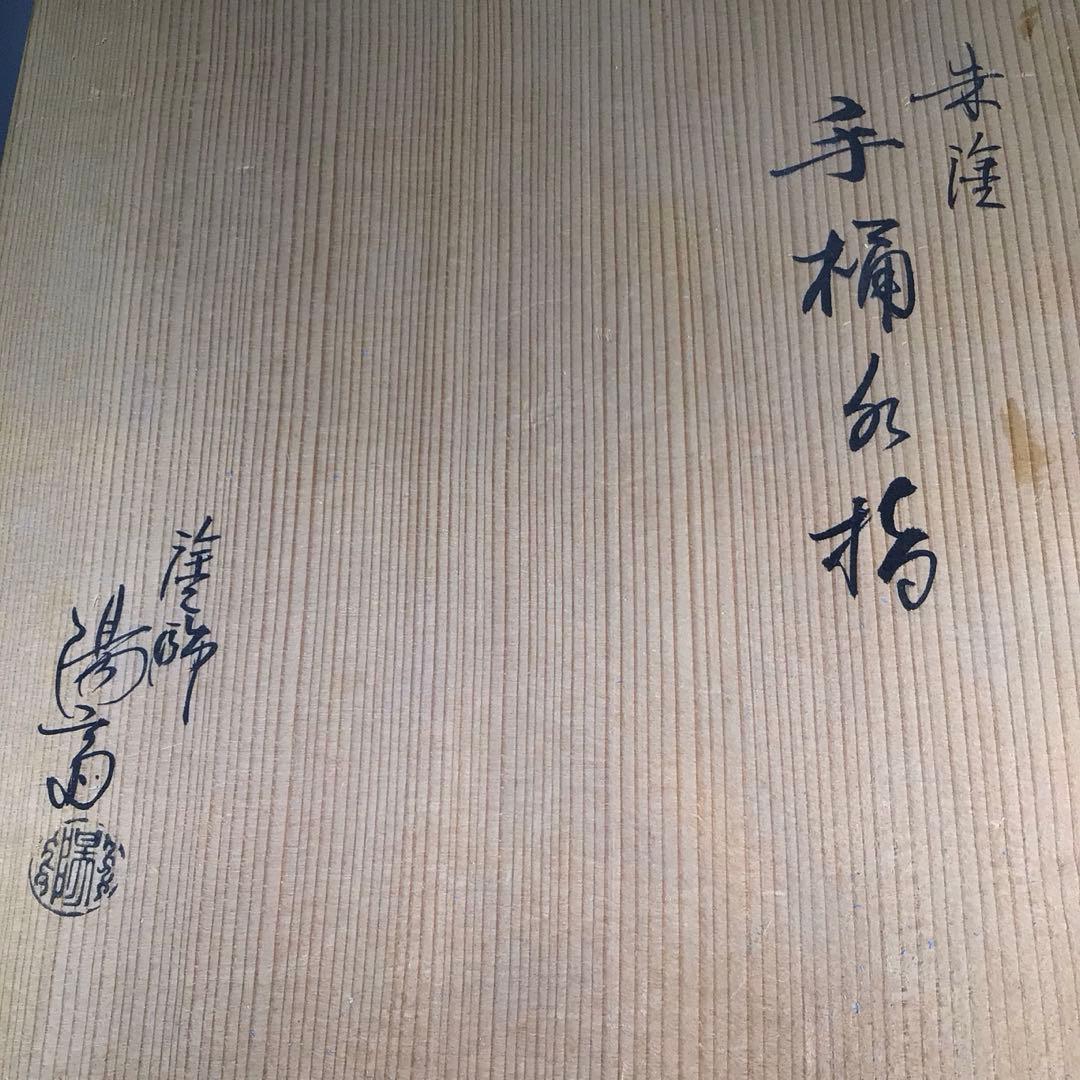 朱塗
手桶水指
塗師
陽斎